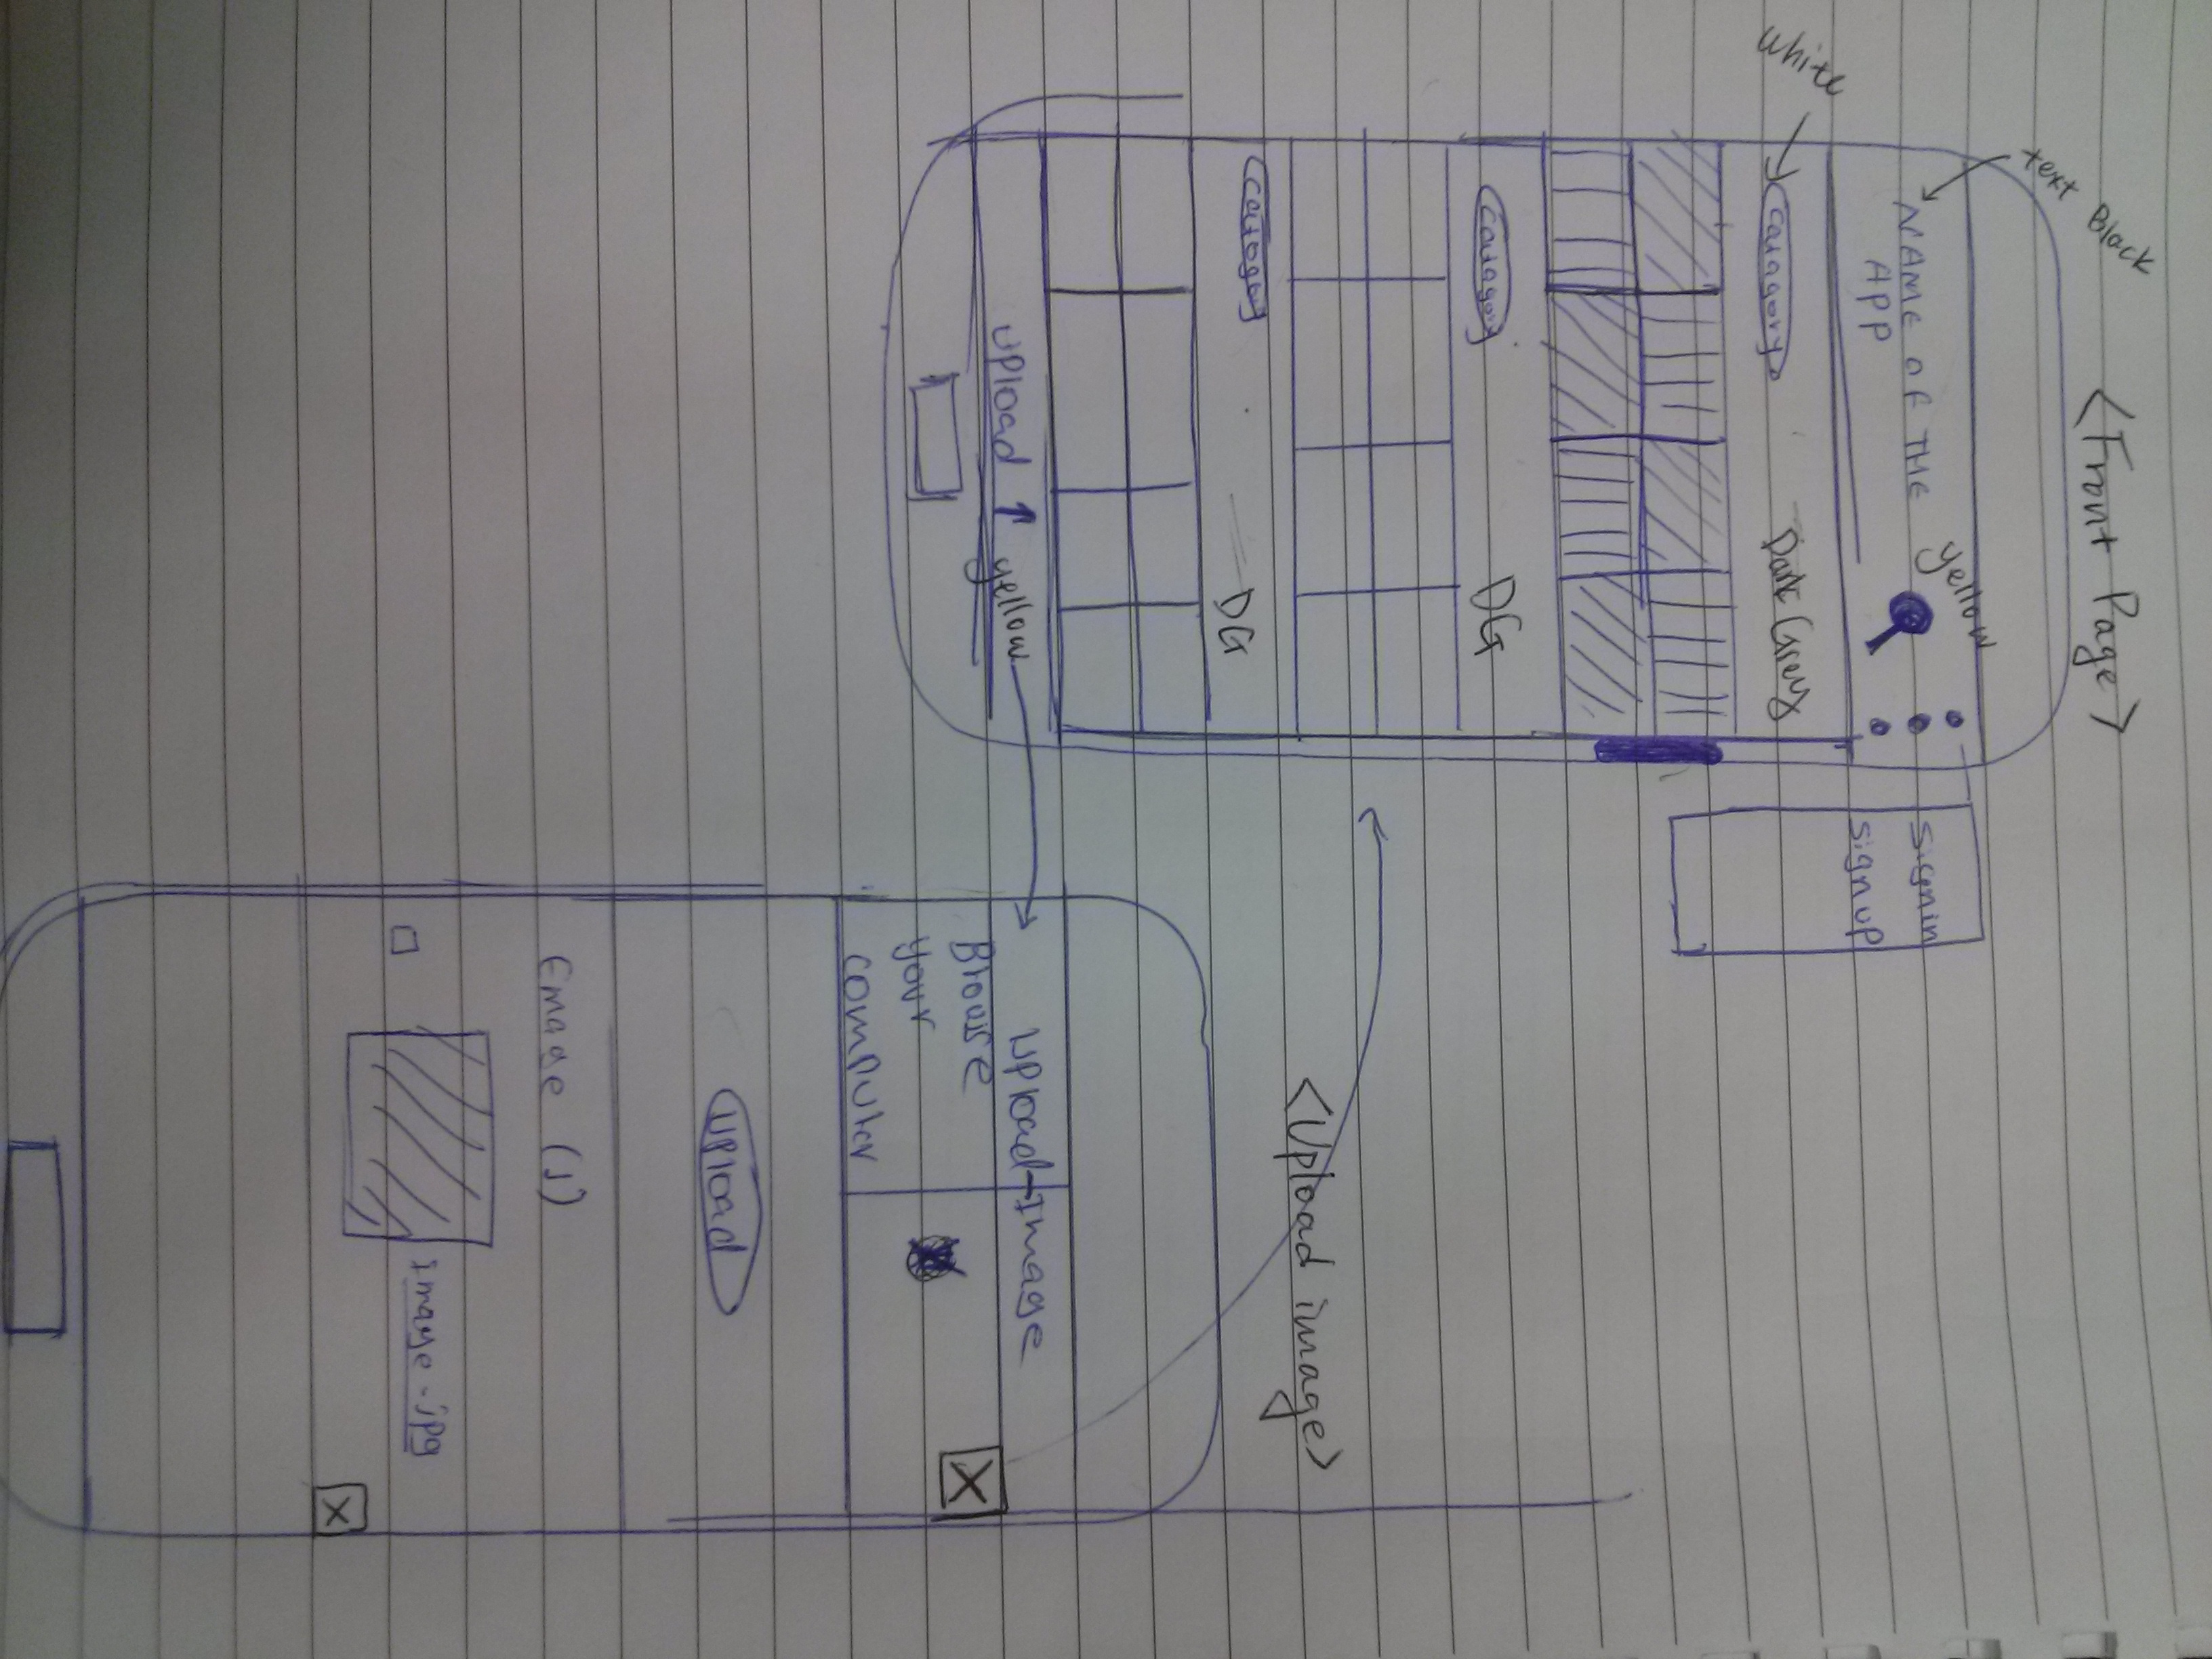 <Front Page>
text Black
yellow
NAME OF THE
APP
signin
signup
white
catagory
Dark Grey
catagory
DG
catogoy
DG
upload
yellow
<Upload image>
Upload Image
Browse
your
computer
X
upload
Emage (1)
image.jpg
X